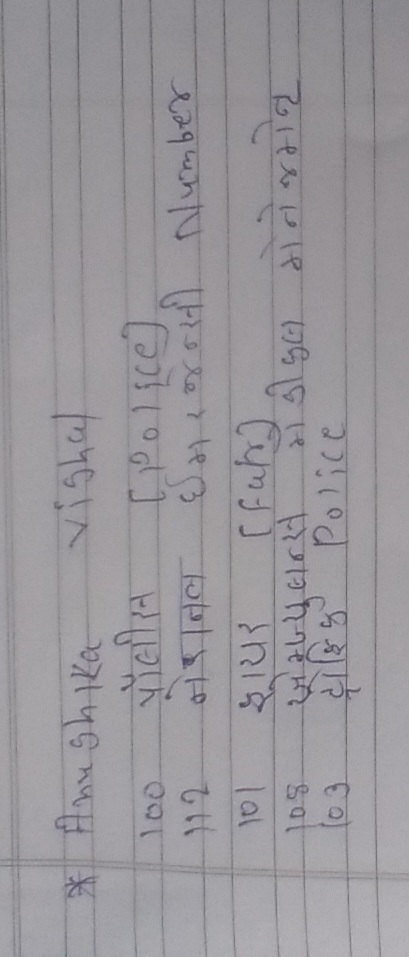 * Anushka Vishal
100 પોલીસ [Police]
112 નેશનલ ઈમરજન્સી Number
101 ફાયર [Fair]
108 એમ્બ્યુલન્સ મેડીકલ મેનેજમેન્ટ
103 ટ્રાફિક Police